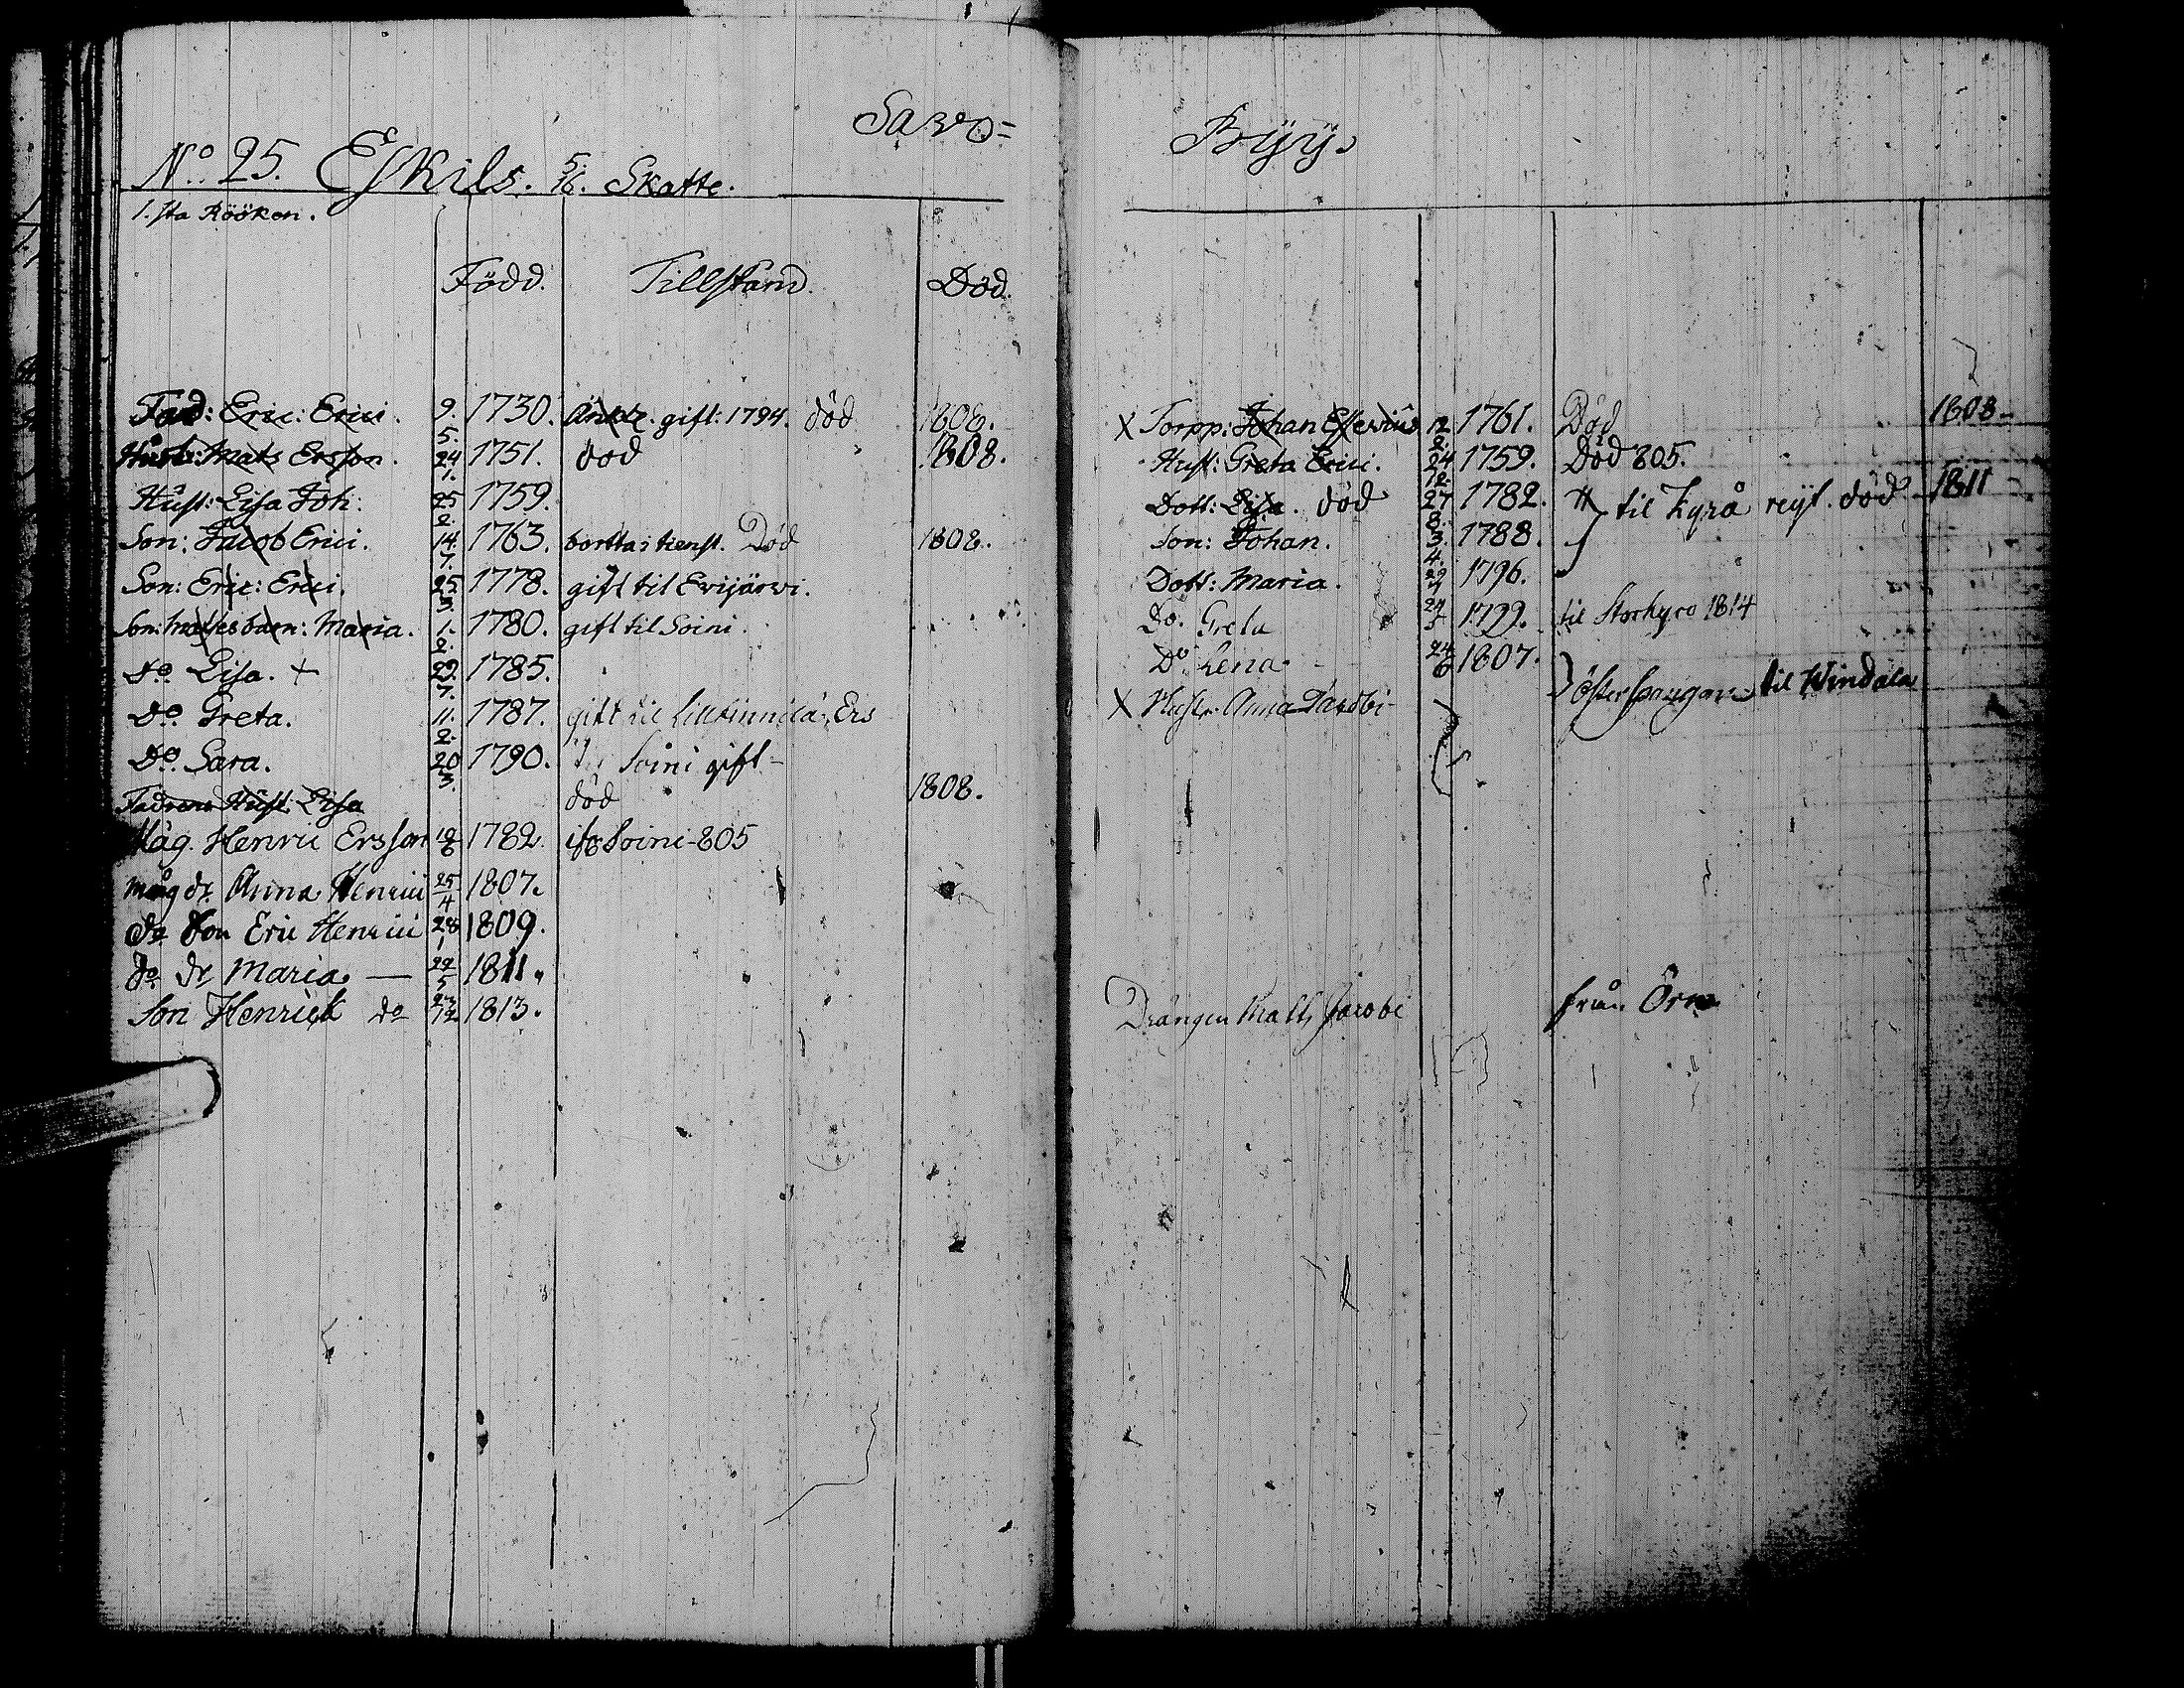 Savo=
No. 25. Eskils. 5/16. Skatte.
1.sta Rööken.
Född. Tillstånd. Död.
Fad: Eric: Erici. 9. 5. 1730. Änkl. gift: 1794. död 1808.
Husb: Mats Ersson. 24 1. 1751. död 1808.
Hust: Lisa Joh: 25 2. 1759.
Son: Jacob Erici. 14. 7. 1763. borttas tienst. Död 1808.
Son: Eric: Erici. 25 3. 1778. gift til Evijärvi.
Son: Matses barn: Maria. 1. 2. 1780. gift til Soini.
do. Lisa. + 29. 7. 1785.
do. Greta. 11. 2. 1787. gift til
do. Sara. 20 3. 1790. til Soini gift-
Fadrens Hust. Lisa död 1808.
Måg. Henric Ersson 1782. Soini-805
måg dr. Anna Henrici 25/4 1807.
do Son Eric Henrici 28/1 1809.
do dr Maria — 29/5 1811.
Son Henrick do 23/12 1813.
Byy.
X Torpp: Johan 12 2. 1761. Död 1808-
Hust: Greta Erici. 24 12. 1759. Död 805.
Dott: Lisa. död 27 8. 1782. til Kyrå reyt. död 1811
Son: Johan. 3. 4. 1788.
Dott: Maria. 29 1796.
Do. Greta 24/5 1799. til Storkyro 1814
Do Lena - 24/6 1807.
X Hustr. Anna Jacobi- til Windala
Drängen Matts Jacobi från